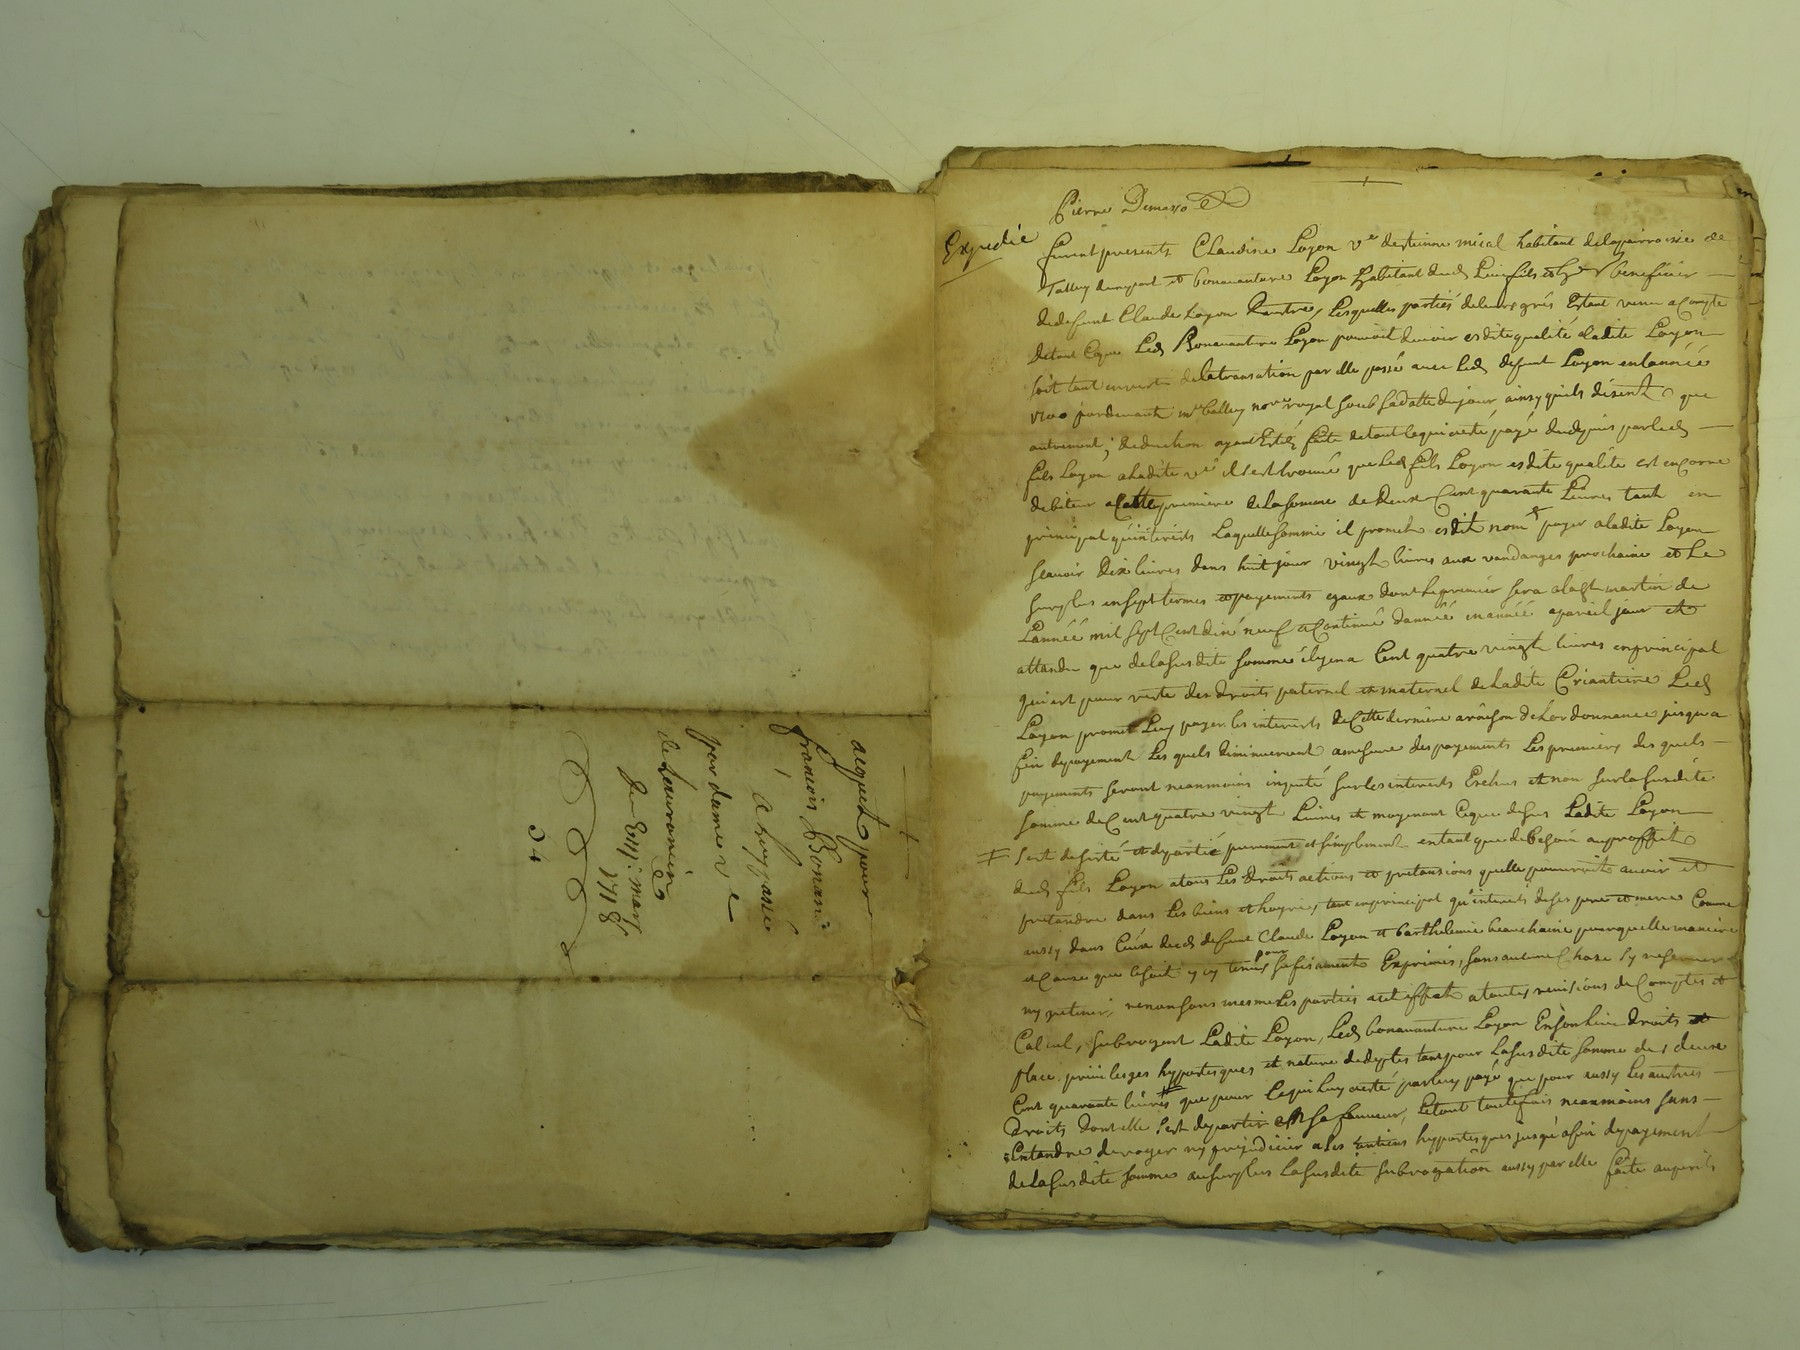 acquest pour
francois Bonan
a huyssasié
par dame v^e
de Lauvancier
du viij: mars
1718
34
Pierre Demasso
Expedié
furent presents Claudine Loyon v^e destienne mical habitante delaparroisse de
Talluy dunepart et bonauanture Loyon habitant dud. Lieu fils et h^er beneficier
dedefunt Claude Loyon dautre, Lesquelles parties deleurs grés Estant venu acompte
detout Ceque Led. Bonauanture Loyon pouuoit deuoir esditequalité aladite Loyon
soit tant en vertu delatransation par elle passé auec Led. defunt Loyon enlannéé
1700 pardeuant m^e balley no^re royal soub sadatte dujour ainsy quils disent que
autrement; deduction ayant Esté faite detout cequi aesté payé dudepuis parled.
fils Loyon aladite v^e il sest trouué que Led. fils Loyon esdite qualite est encorre
debiteur alatte premiere delasomme de deux Cent quarante Liures tant en
principal quinterets Laquelle somme il promet esdit nom payer aladite Loyon
scauoir dix liures dans huit jour vingt liures aux vandanges prochaine et Le
surplus ensept termes et payements egaux dont lepremier sera alast martin de
Lannéé mil sept Cent dix neuf et Continué dannéé enannéé apareil jour et
attandu que delasusdite somme ilyena Cent quatre vingt liures enprincipal
qui est pour reste des droits paternel et maternel deladite Criantiere Led.
Loyon promet Luy payer les interets deCette derniere araison deLordonnance jusqua
fin depayement Les quels diminueront amesure despayements Les premiers des quels
payements seront neanmoins inputé surles interets Escheus et non surlasusdite
somme deCent quatre vingt Liures et moyenant Ceque dessus Ladite Loyon
sest desisté et departie purement et simplement entant que debesoin auproffit
dud. fils Loyon atous Les droits actions et pretansions quelle pourroit auoir et
pretandre dans Les biens et hoyries tant enprincipal qu'interets deses pere et mere Comme
aussy dans Ceux dud. defunt Claude Loyon et barthelemie beauchaine pourquelle maniere
et Cause que cesoit y cy tenus pour sufisament Exprimés, sans aucune Chose sy reseruer
ny retenir, renonsans mesmes les parties acet effet atoutes reuisions deComptes et
Calcul, subrogent Ladite Loyon, Led. bonauanture Loyon Enson lieu droits et
place, priuileges hypoteques et nature dedeptes tant pour Lasusdite somme de deux
Cent quarante liures que pour Cequi luy aesté parluy payé que pour aussy Les autres
droits dont elle sest departie en sa faueur, Letout toutefois neanmoins sans
Entandre deroger ny prejudicier ases antiens hypoteques jusqu'afin depayement
delasusdite somme ausurplus Lasusdite subrogation aussy par elle faite auperils